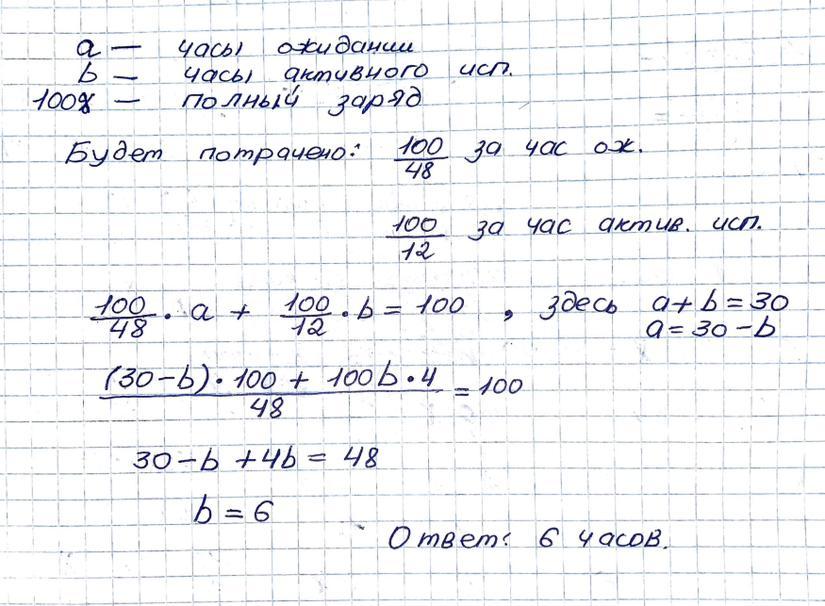 a — часы ожидании
b — часы активного исп.
100% — полный заряд
Будет потрачено: 100/48 за час ож.
100/12 за час актив. исп.
100/48 · a + 100/12 · b = 100 , здесь a + b = 30
a = 30 - b
(30 - b) · 100 + 100b · 4 / 48 = 100
30 - b + 4b = 48
b = 6
Ответ: 6 часов.